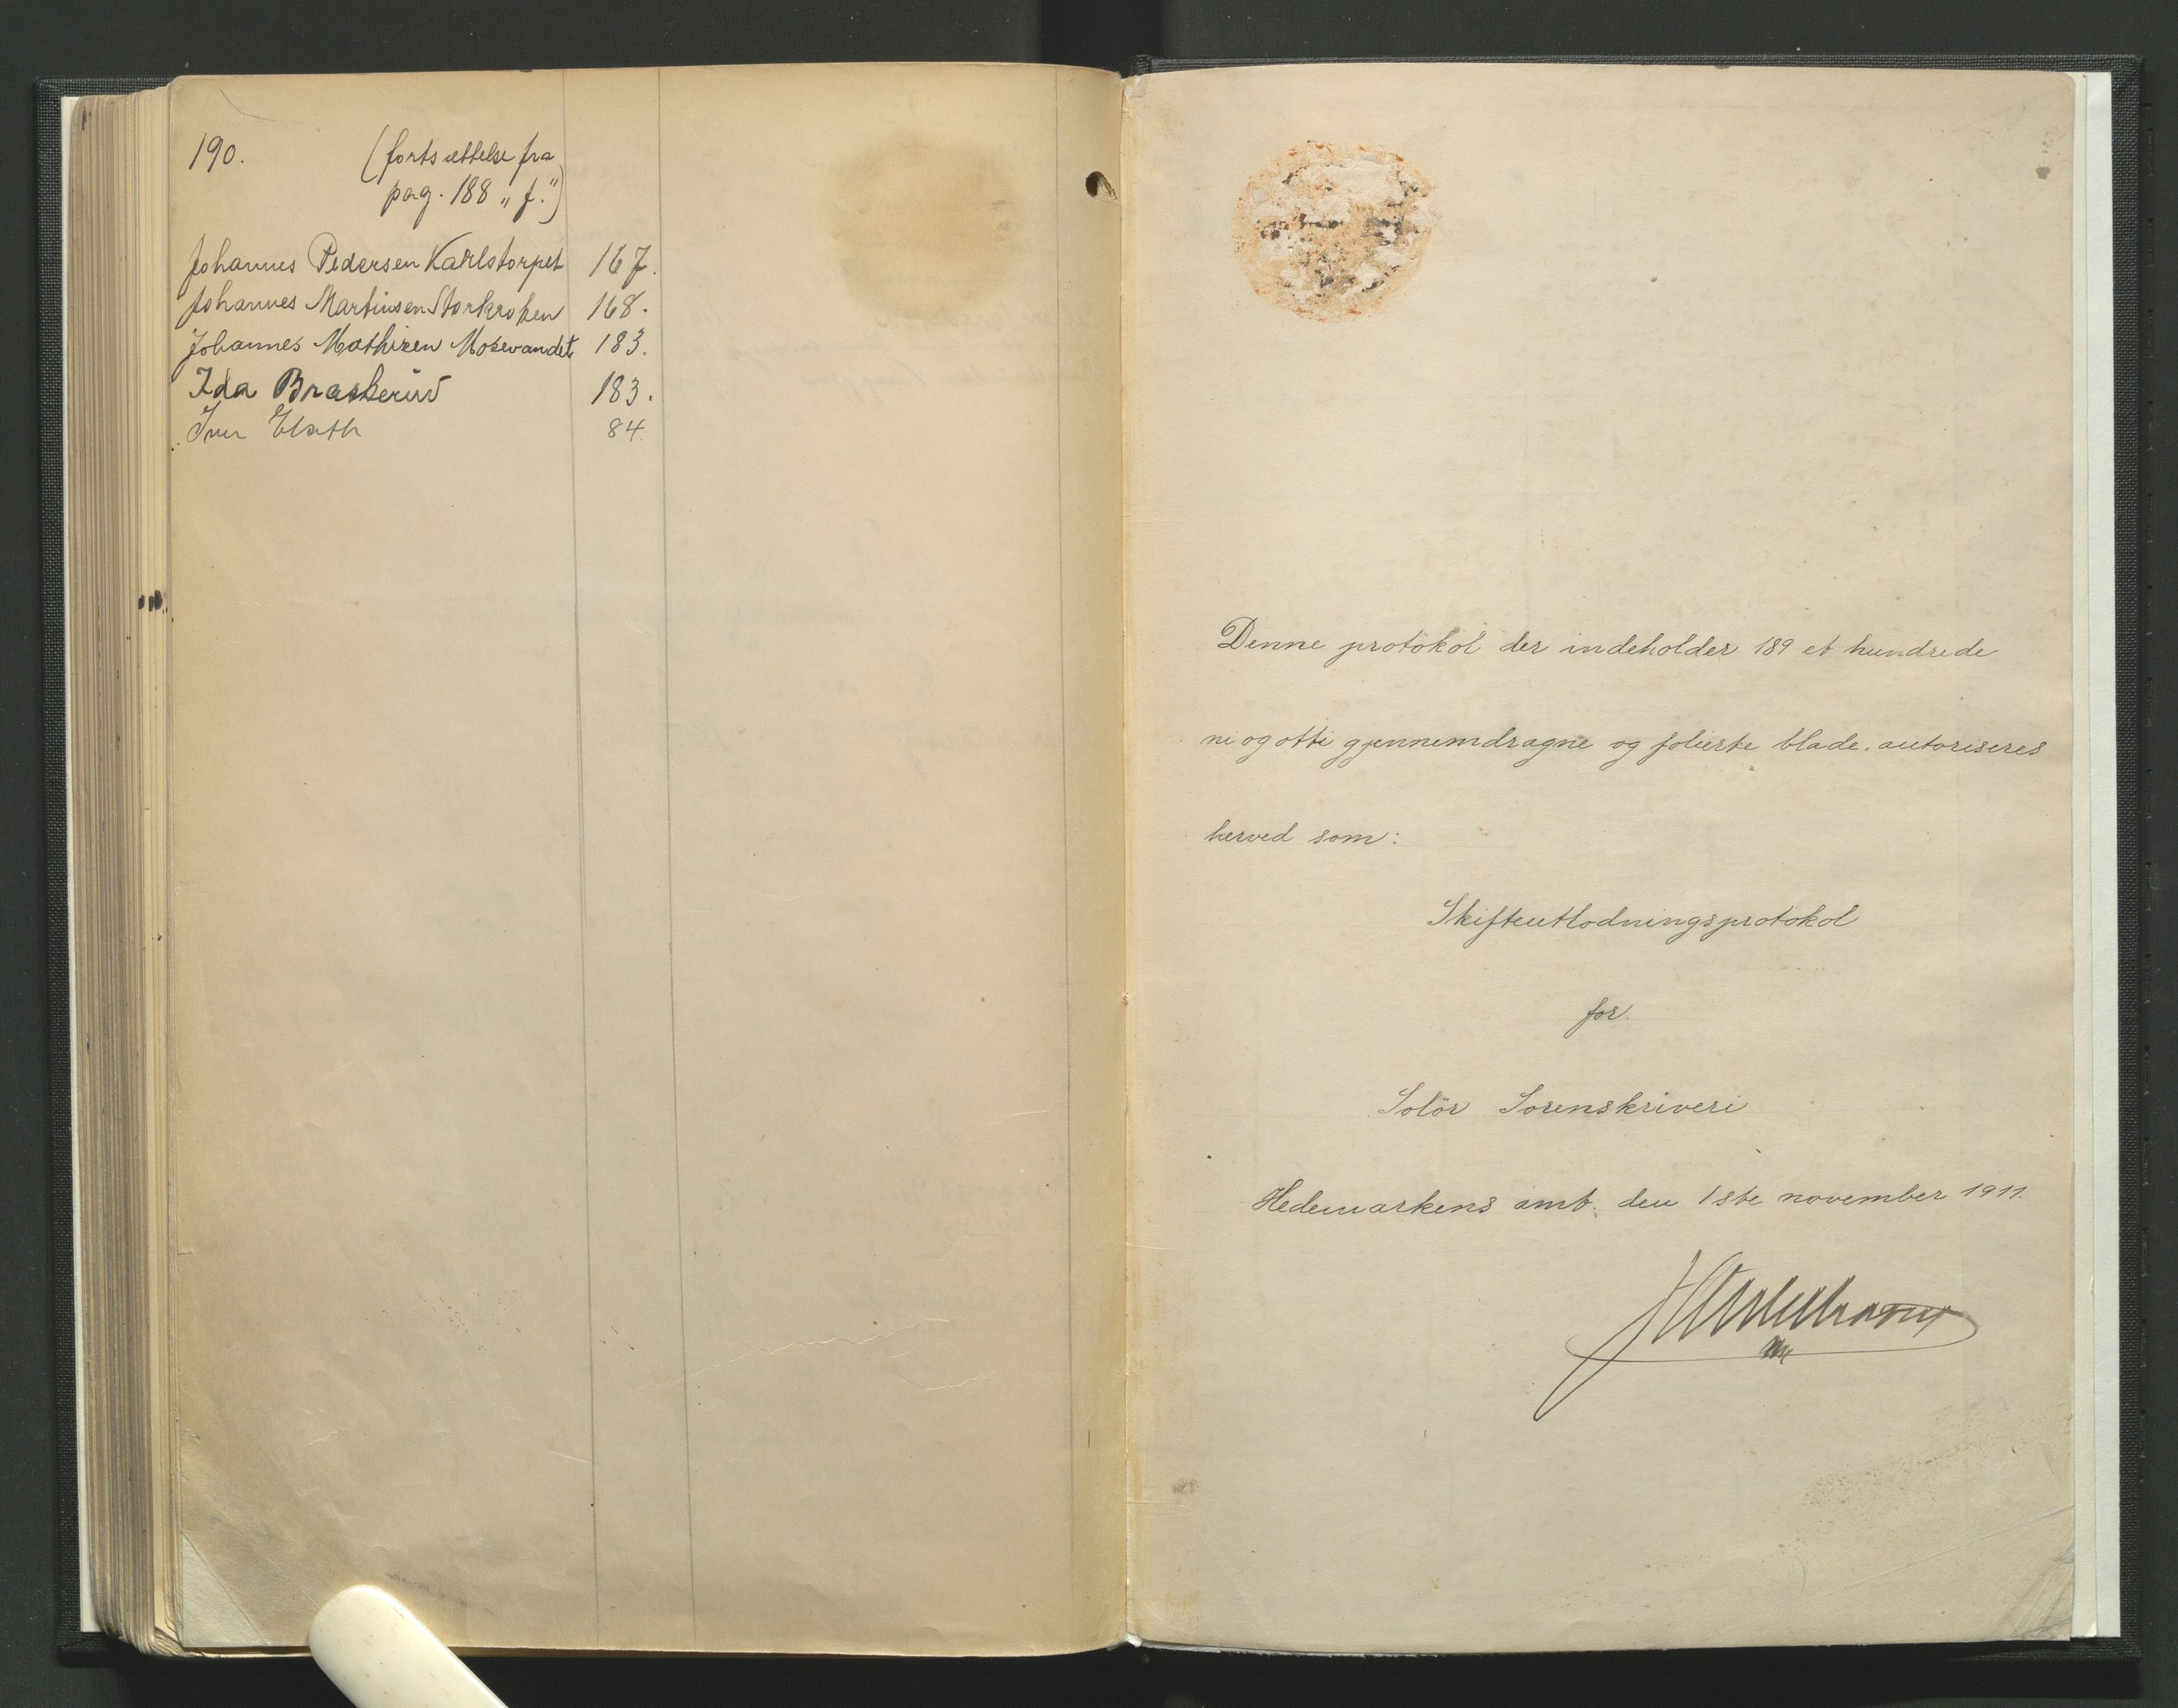 190. (fortsættelse fra
pag. 188 „f.")
Johannes Pedersen Karlstorpet 167.
Johannes Martinsen Storkroken 168.
Johannes Mathisen Mosevandet 183.
Ida Braskerud 183.
Iver 84
Denne protokol der indeholder 189 et hundrede
ni og otti gjennemdragne og folierte blade. autoriseres
herved som:
Skifteutlodningsprotokol
for.
Solör Sorenskriveri
Hedemarkens amt. den 1ste november 1911.